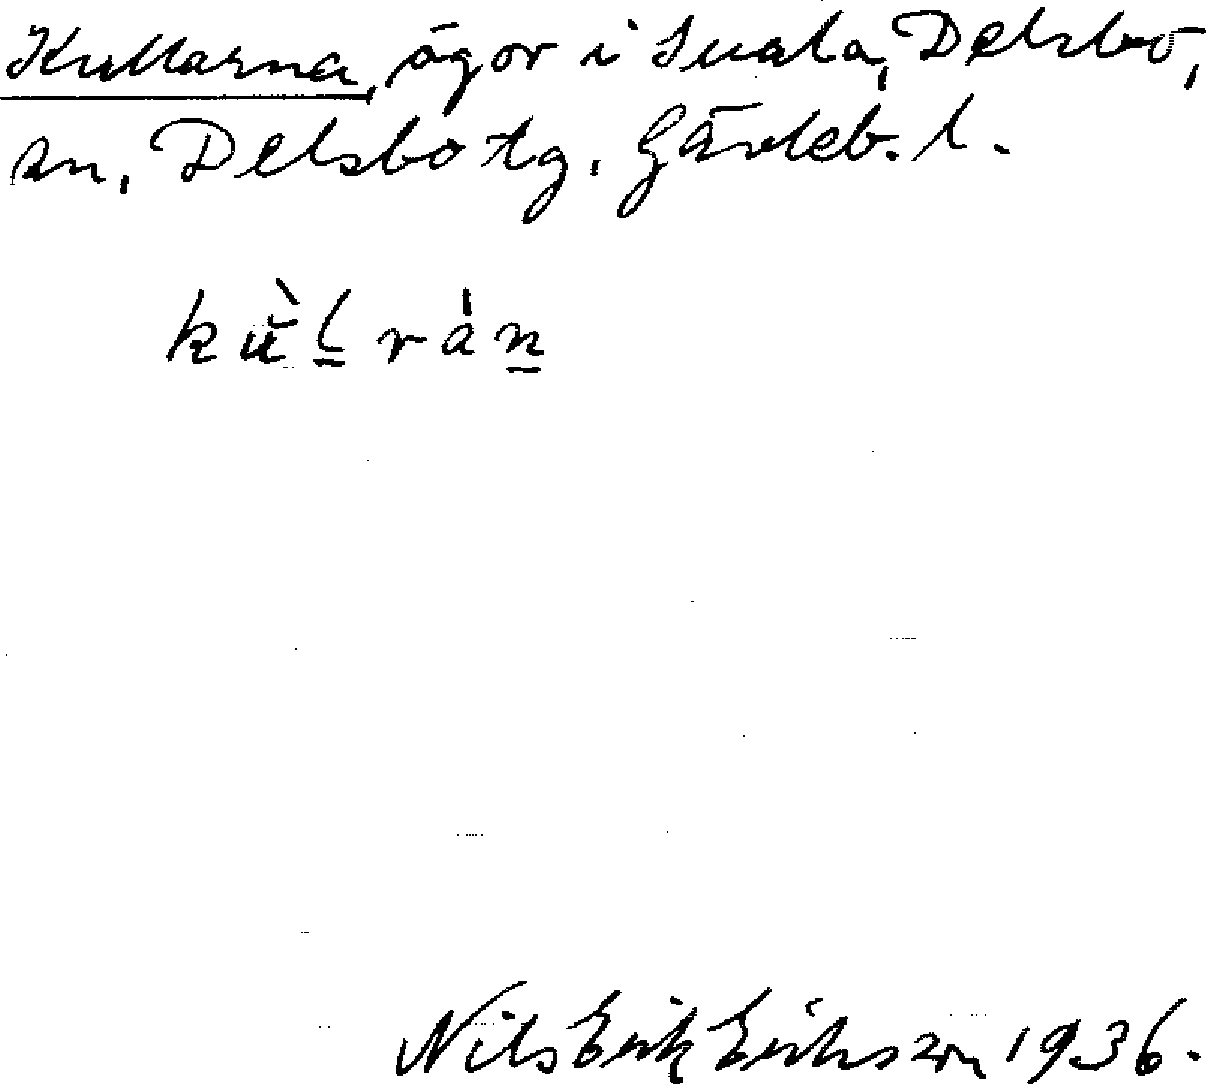 Kullarna, ägor i Svala, Delsbo,
sn, Delsbo tg, Gävleb. l.
kù̆l̲rán̲
Nils Erik Erikszon 1936.